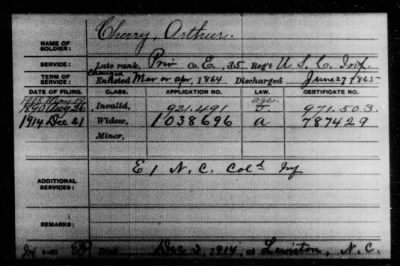 NAME OF SOLDIER: Cherry, Arthur.
SERVICE: Late rank, Priv Co. E, 35 Reg't U. S. C. Inf.
TERM OF SERVICE: Enlisted Mar or Apr, 1864 Discharged June 27 1865
DATE OF FILING. CLASS. APPLICATION NO. LAW. CERTIFICATE NO.
1890 Aug 26 Invalid, 921.491 971.503.
1914 Dec 21 Widow, 1038696 a 787429
Minor,
ADDITIONAL SERVICES: E 1 N. C. Cold Inf
REMARKS:
Died Dec 3, 1914, at Lewiston, N. C.